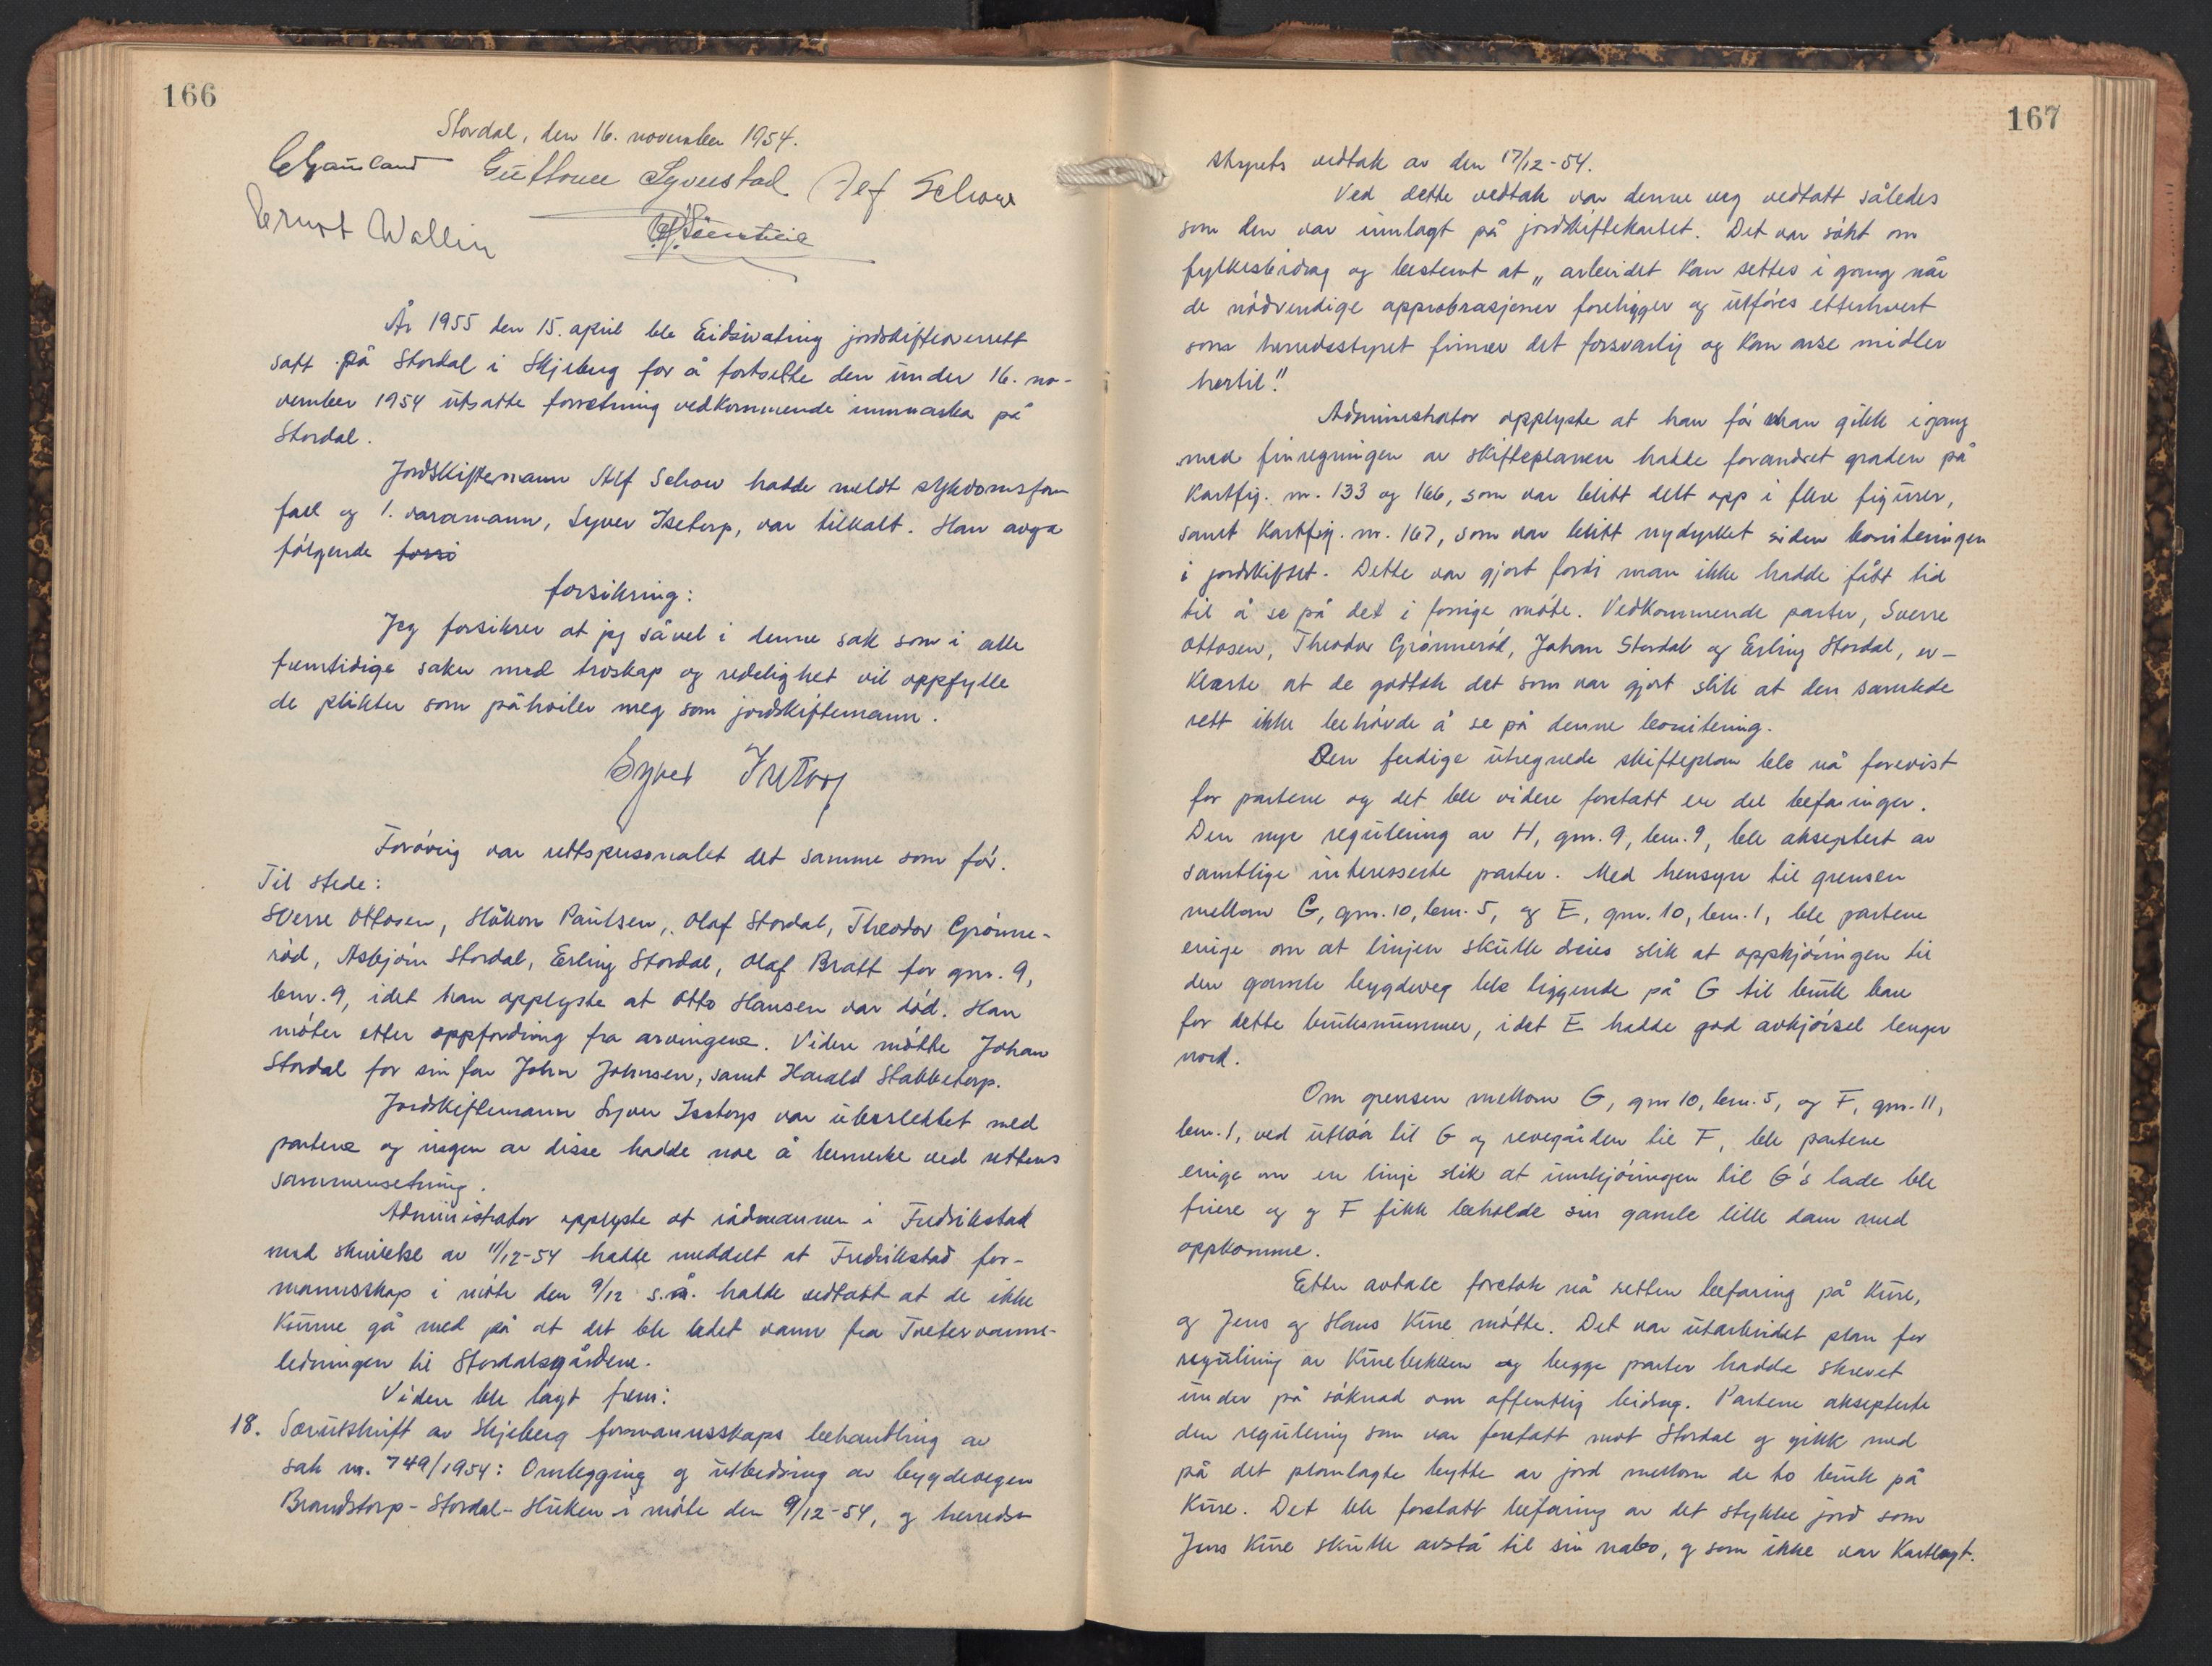 166
Stordal, den 16. november 1954.
Guttorm Syverstad Alf Schow
Ernst Wallin
År 1955 den 15. april ble Eidsivating jordskifteoverrett
satt på Stordal i Skjeberg for å fortsette den under 16. no-
vember 1954 utsatte forretning vedkommende innmarka på
Stordal.
Jordskiftemann Alf Schow hadde meldt sykdomsfor-
fall og 1. varamann, Syver Isetorp, var tilkalt. Han avga
følgende forsi
forsikring:
Jeg forsikrer at jeg såvel i denne sak som i alle
fremtidige saker med troskap og redelighet vil oppfylle
de plikter som påhviler meg som jordskiftemann.
Syver Isetorp
Forøvrig var rettspersonalet det samme som før.
Til stede:
Sverre Ottosen, Håkon Paulsen, Olaf Stordal, Theodor Grønne-
rød, Asbjørn Stordal, Erling Stordal, Olaf Bratt for gnr. 9,
bnr. 9, idet han opplyste at Otto Hansen var død. Han
møter etter oppfordring fra arvingene. Videre møtte Johan
Stordal for sin far John Johnsen, samt Harald Stabbetorp.
Jordskiftemann Syver Isetorp var ubeslektet med
partene og ingen av disse hadde noe å bemerke ved rettens
sammensetning.
Administrator opplyste at rådmannen i Fredrikstad
med skrivelse av 11/12-54 hadde meddelt at Fredrikstad for-
mannsskap i møte den 9/12 s.å. hadde vedtatt at de ikke
kunne gå med på at det ble ledet vann fra Tvetervanns-
ledningen til Stordalsgårdene.
Videre ble lagt frem:
18. Særutskrift av Skjeberg formannsskaps behandling av
sak nr. 749/1954: Omlegging og utbedring av bygdevegen
Brandstorp - Stordal - Huken i møte den 9/12-54, og herreds-
167
styrets vedtak av den 17/12-54.
Ved dette vedtak var denne veg vedtatt således
som den var innlagt på jordskiftekartet. Det var søkt om
fylkesbidrag og bestemt at „arbeidet kan settes i gang når
de nødvendige approbrasjoner foreligger og utføres etterhvert
som herredsstyret finner det forsvarlig og kan anse midler
hertil."
Administrator opplyste at han før han gikk igang
med finregningen av skifteplanen hadde forandret graden på
kartfig. nr. 133 og 166, som var blitt delt opp i flere figurer,
samt kartfig. nr. 167, som var blitt nydyrket siden boniteringen
i jordskiftet. Dette var gjort fordi man ikke hadde fått tid
til å se på det i forrige møte. Vedkommende parter, Sverre
Ottosen, Theodor Grønnerød, Johan Stordal og Erling Stordal, er-
klærte at de godtok det som var gjort slik at den samlede
rett ikke behøvde å se på denne bonitering.
Den ferdige utregnede skifteplan ble nå forevist
for partene og det ble videre foretatt en del befaringer.
Den nye regulering av H, gnr. 9, bnr. 9, ble akseptert av
samtlige interesserte parter. Med hensyn til grensen
mellom G, gnr. 10, bnr. 5, og E, gnr. 10, bnr. 1, ble partene
enige om at linjen skulle dreies slik at oppkjøringen til
den gamle bygdeveg ble liggende på G til bruk bare
for dette bruksnummer, idet E hadde god avkjørsel lenger
nord.
Om grensen mellom G, gnr 10, bnr. 5, og F, gnr. 11,
bnr. 1, ved utløa til G og revegården til F, ble partene
enige om en linje slik at innkjøringen til G's lade ble
friere og g F fikk beholde sin gamle lille dam med
oppkomme.
Etter avtale foretok nå retten befaring på Kure,
og Jens og Hans Kure møtte. Det var utarbeidet plan for
regulering av Kurebekken og begge parter hadde skrevet
under på søknad om offentlig bidrag. Partene aksepterte
den regulering som var foretatt mot Stordal og gikk med
på det planlagte bytte av jord mellom de to bruk på
Kure. Det ble foretatt befaring av det stykke jord som
Jens Kure skulle avstå til sin nabo, og som ikke var kartlagt.